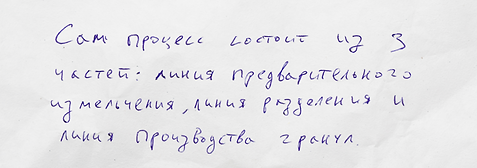 Сам процесс состоит из 3
частей: линия предварительного
измельчения, линия разделения и
линия производства гранул.